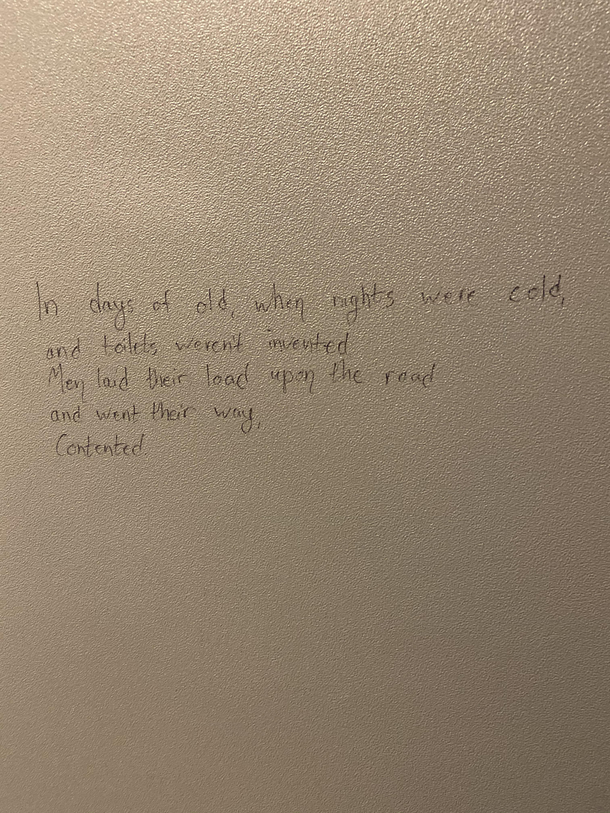 In days of old, when nights were cold,
and toilets weren't invented
Men laid their load upon the road
and went their way,
Contented.